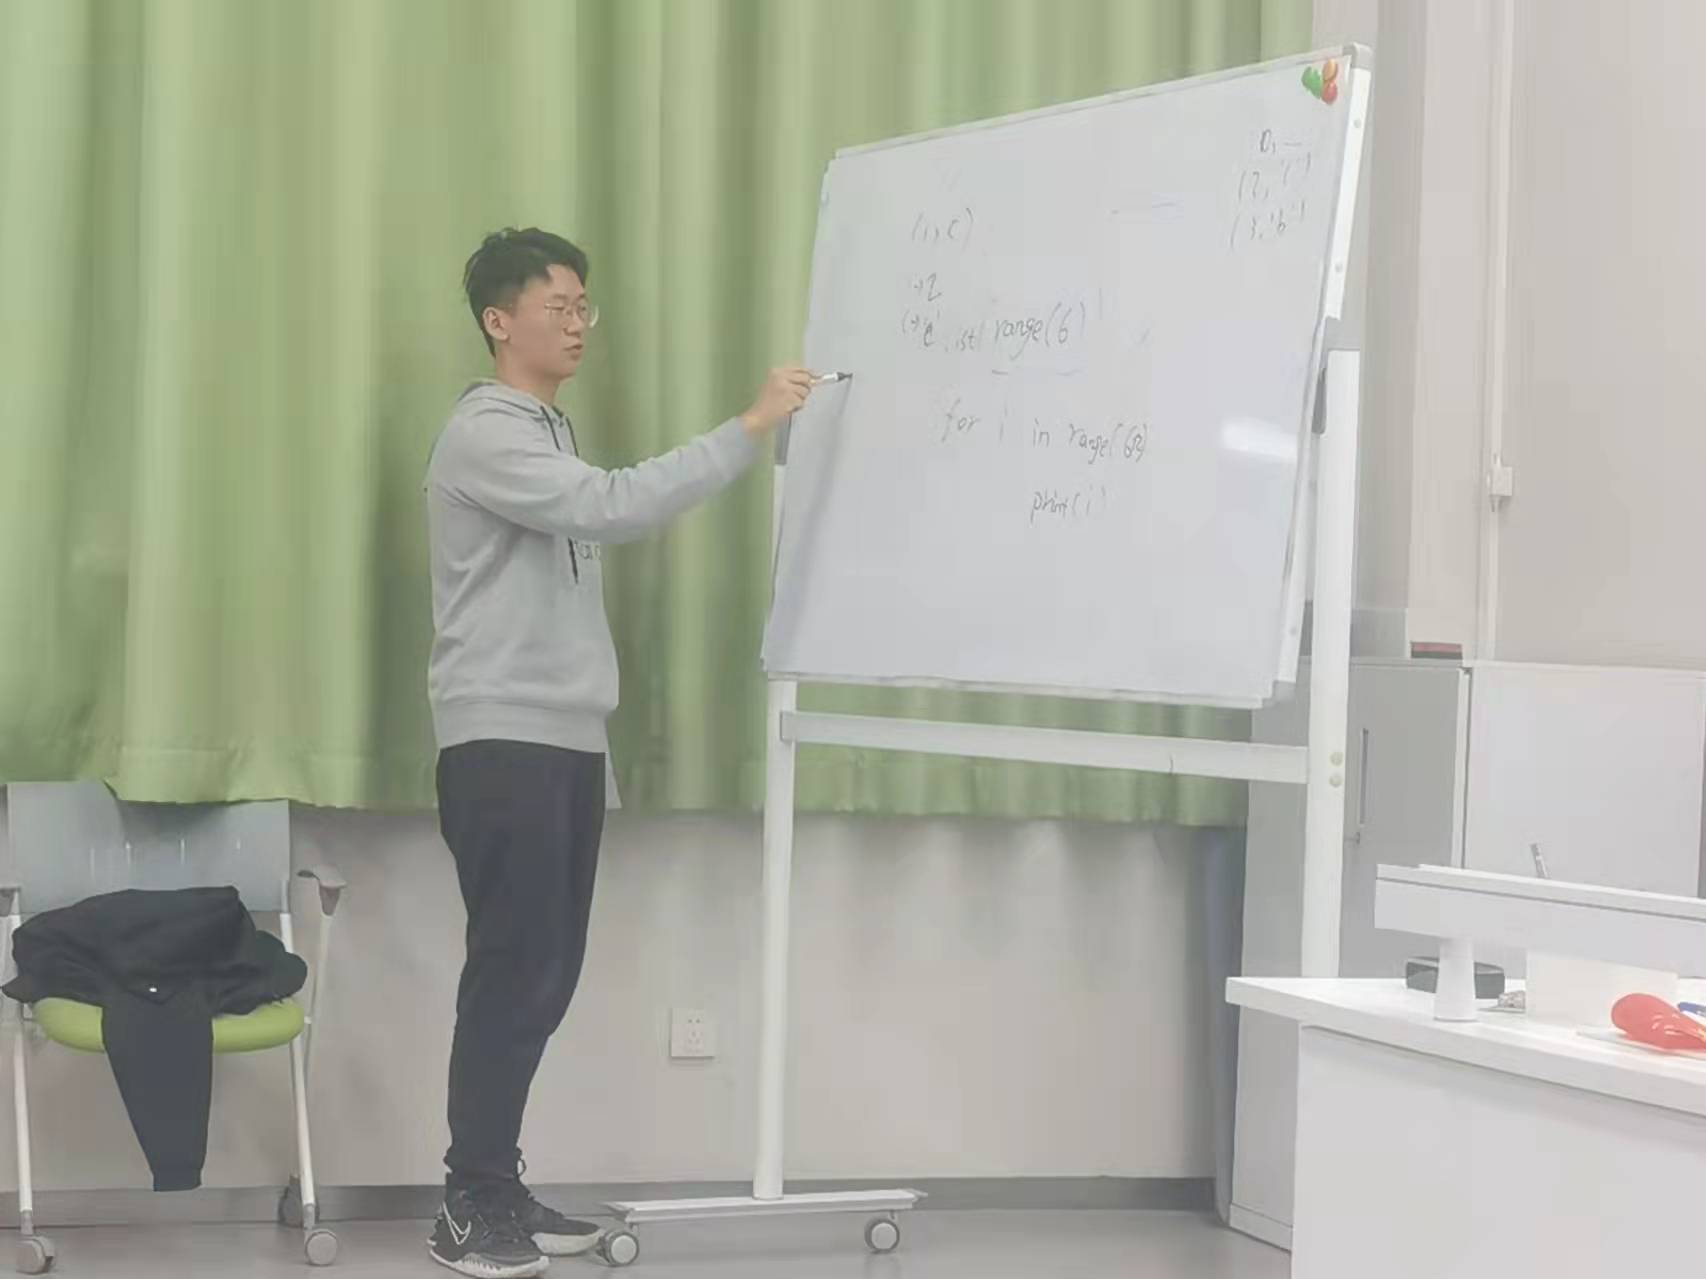 (i, c)
i→2
c→'c'
list(range(6))
for i in range(6)
print(i)
0,
(2, 'c')
(3, 'b')